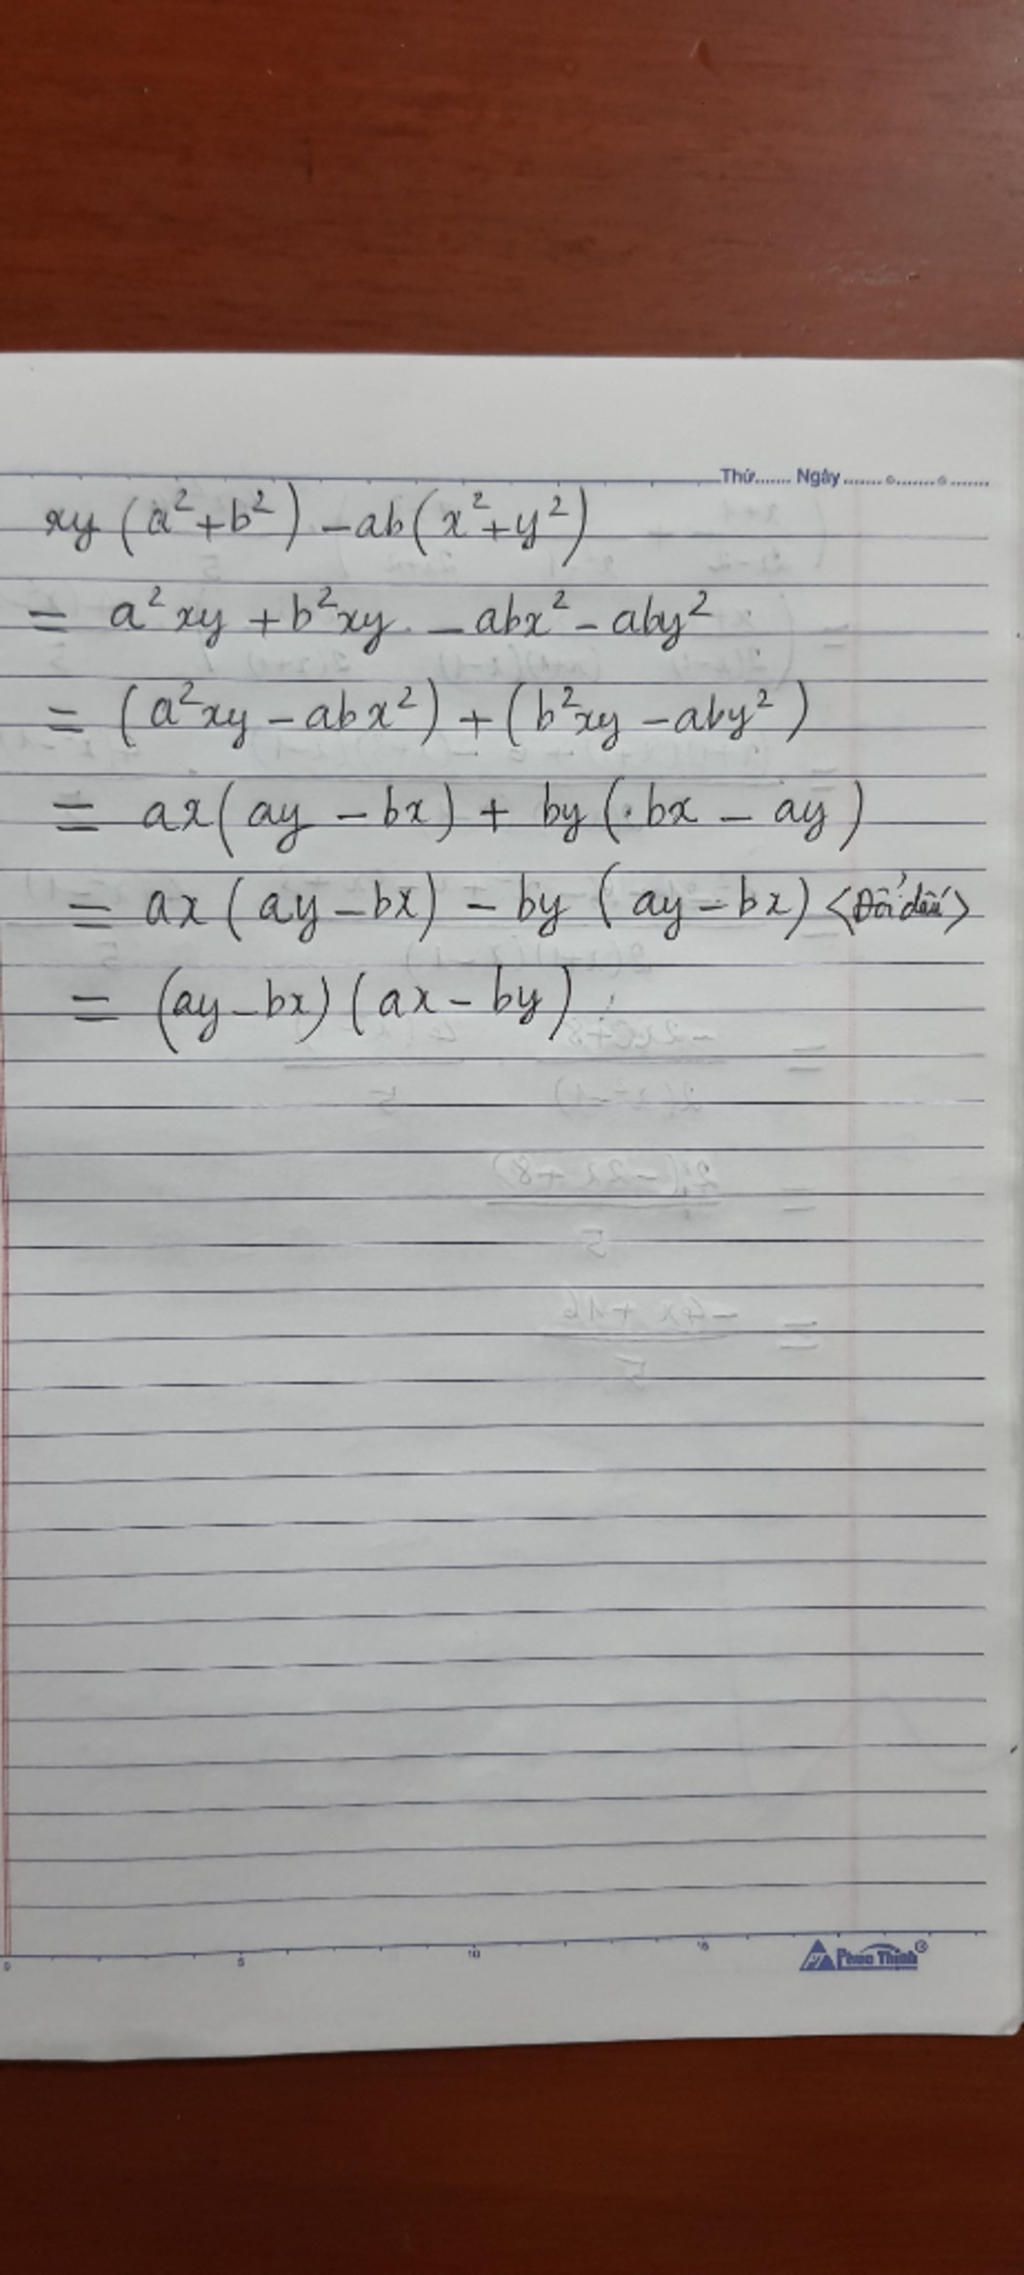 Thứ....... Ngày.......o.......o.......
xy (a² + b²) - ab(x² + y²)
= a²xy + b²xy - abx² - aby²
= (a²xy - abx²) + (b²xy - aby²)
= ax(ay - bx) + by(bx - ay)
= ax(ay - bx) - by(ay - bx) <Đổi dấu>
= (ay - bx)(ax - by)
0 5 10 15 Phuc Thinh